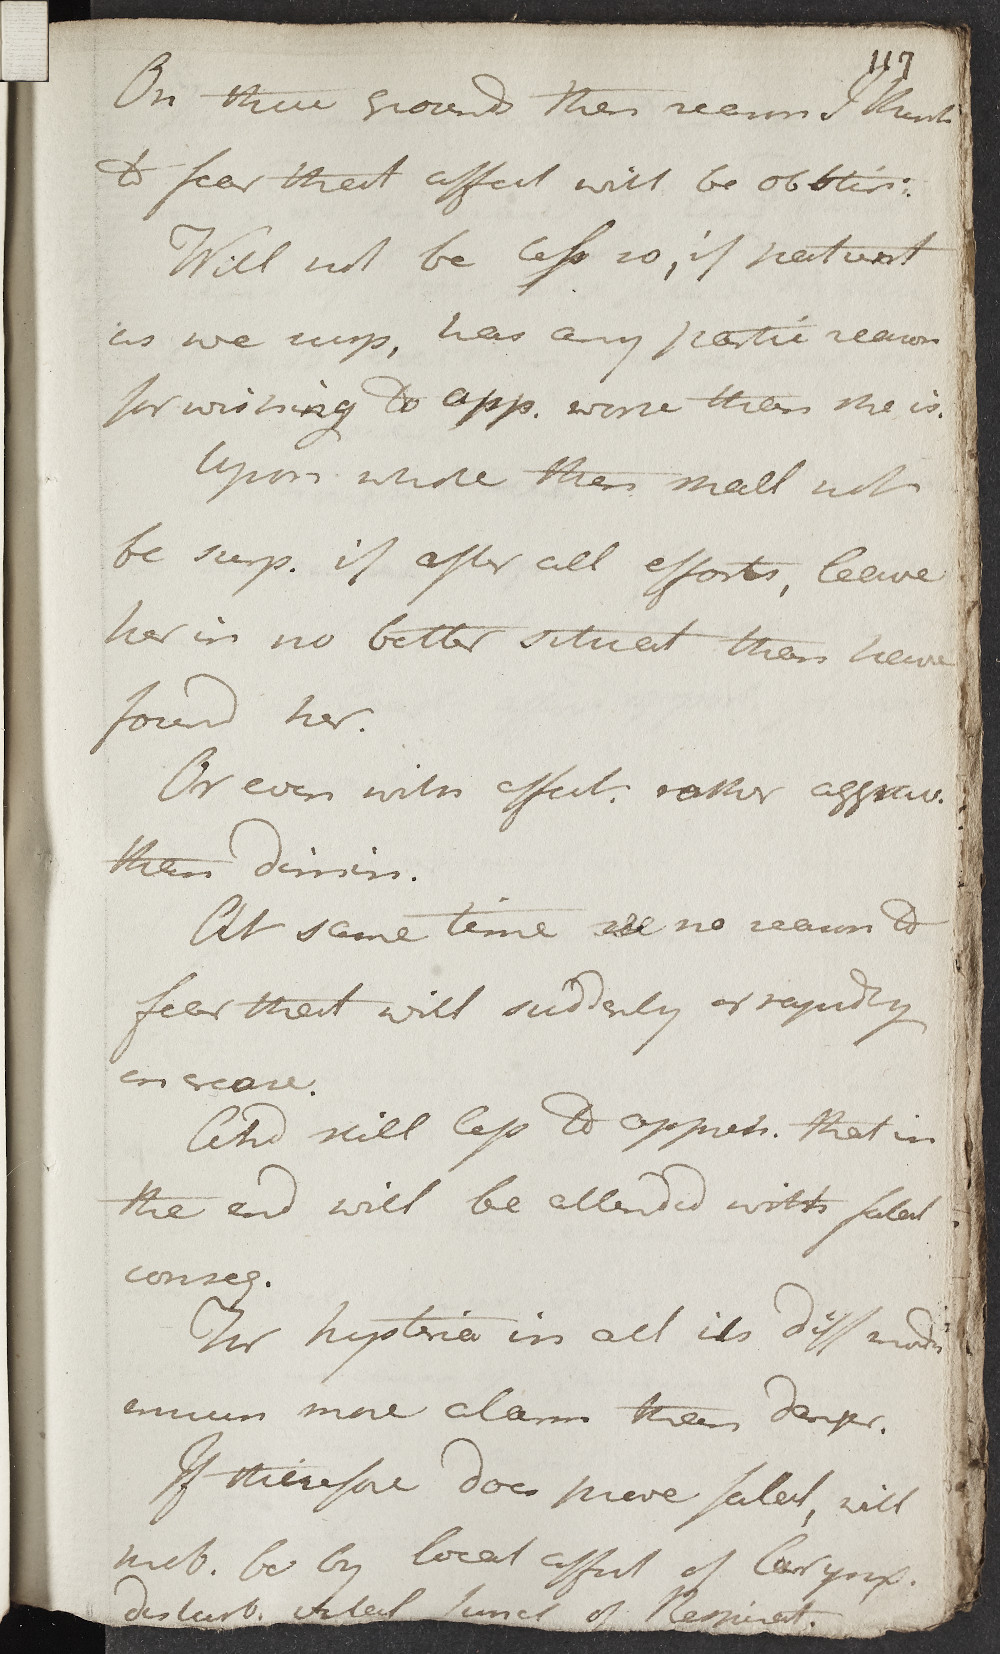 117
On these grounds then reason I think
to fear that affect will be obstin:
Will not be less so, if patient
as we susp, has any partic reason
for wishing to app. worse than she is.
Upon whole then shall not
be surp. if after all efforts, leave
her in no better situat than have
found her.
Or even with affect. rather aggrav.
than dimin.
At same time see no reason to
fear that will suddenly or rapidly
increase.
And still less to appreh. that in
the end will be attended with fatal
conseq.
For hysteria in all its diff mods
more alarm than danger.
If therefore does prove fatal, will
prob. be by local affect of Larynx.
disturb. vital funct of Respirat.